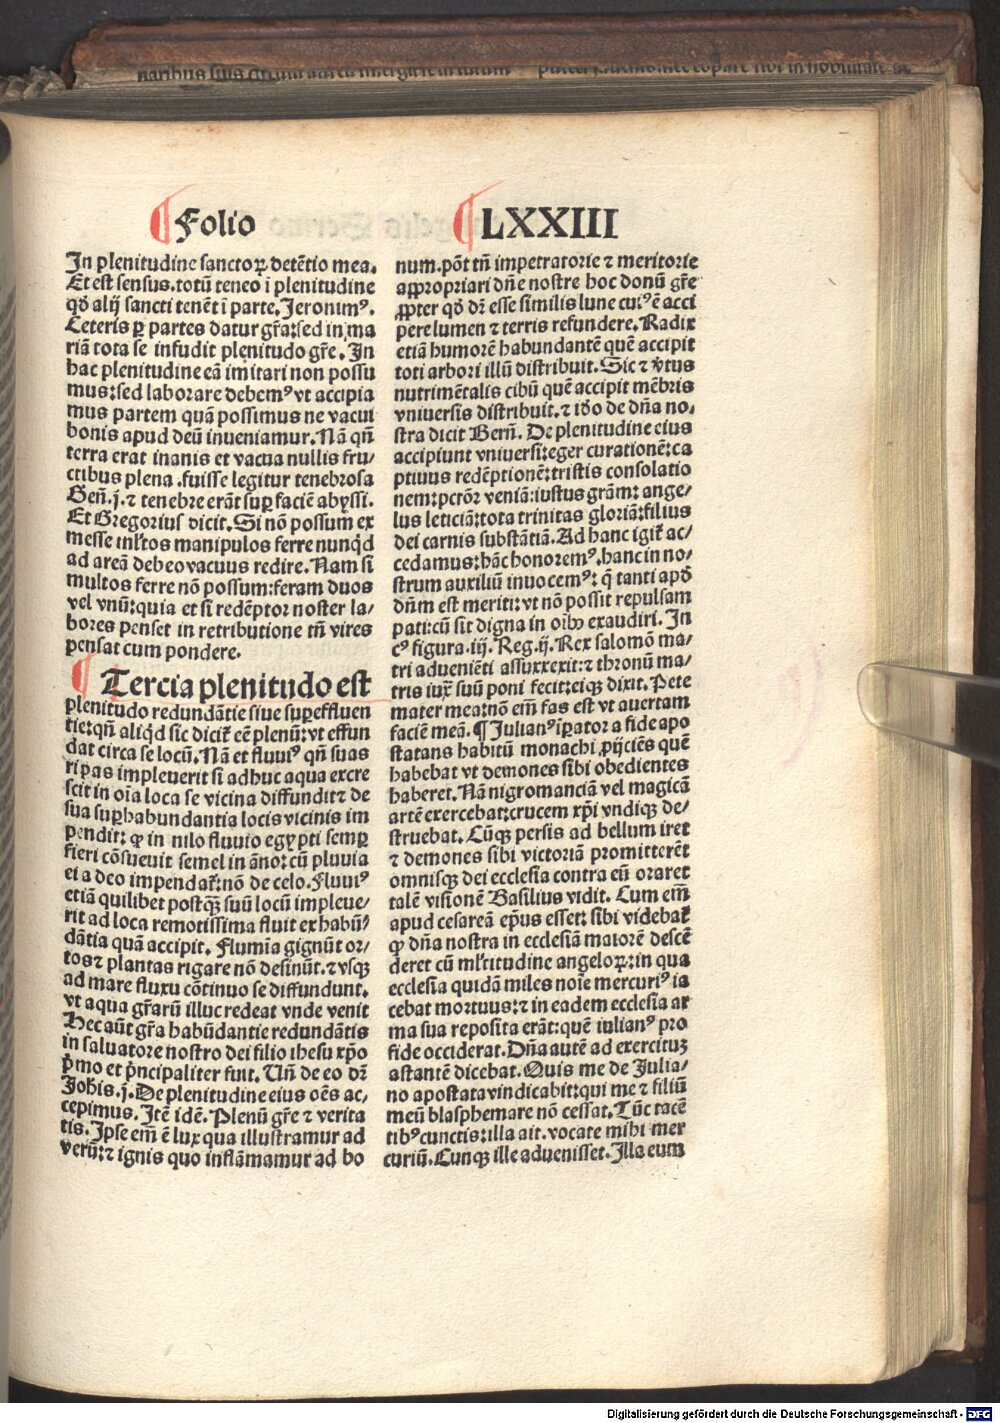 ¶ Folio ¶ LXXIII
In plenitudine sanctoꝝ detētio mea.
Et est sensus. totū teneo ī plenitudine
qḋ alij sancti tenēt ī parte. Jeronimꝰ.
Ceteris ꝑ partes datur gr̄a: sed in ma
riā tota se infudit plenitudo gr̄e. In
hac plenitudine eā imitari non possu
mus: sed laborare debemꝰ vt accipia
mus partem quā possimus ne vacui
bonis apud deū inueniamur. Nā qn̄
terra erat inanis et vacua nullis fru/
ctibus plena .fuisse legitur tenebrosa
Geñ. j. ⁊ tenebre erāt suꝑ faciē abyssi.
Et Gregorius dicit. Si nō possum ex
messe ml̓tos manipulos ferre nunqͥd
ad areā debeo vacuus redire. Nam si
multos ferre nō possum: feram duos
vel vnū: quia et si redēptor noster la/
bores penset in retributione tn̄ vires
pensat cum pondere.
¶ Tercia plenitudo est
plenitudo redundātie siue suꝑeffluen
tie: qn̄ aliqͥd sic dicit̄ eē plenū: vt effun
dat circa se locū. Nā et fluuiꝰ qn̄ suas
ripas impleuerit si adhuc aqua excre
scit in oīa loca se vicina diffundit: ⁊ de
sua suꝑhabundantia locis vicinis im
pendit: ꝙ in nilo fluuio egypti semꝑ
fieri cōsueuit semel in āno: cū pluuia
ei a deo impendat̄: nō de celo. Fluuiꝰ
etiā quilibet postqꝫ suū locū impleue/
rit ad loca remotissima fluit ex habū/
dātia quā accipit. Flumīa gignūt or/
tos ⁊ plantas rigare nō desinūt. ⁊ vsqꝫ
ad mare fluxu cōtinuo se diffundunt.
vt aqua gr̄arū illuc redeat vnde venit
Hec aūt gr̄a habūdantie redundātis
in saluatore nostro dei filio ihesu xp̄o
pͥmo et pͥncipaliter fuit. Vñ de eo dr̄
Johis. j. De plenitudine eius oēs ac/
cepimus. Itē idē. Plenū gr̄e ⁊ verita
tis. Ipse em̄ ē lux qua illustramur ad
verū: ⁊ ignis quo inflāmamur ad bo
num. pōt tn̄ impetratorie ⁊ meritorie
appropriari dn̄e nostre hoc donū gr̄e
ꝓpter qḋ dr̄ esse similis lune cuiꝰ ē acci
pere lumen ⁊ terris refundere. Radix
etiā humorē habundantē quē accipit
toti arbori illū distribuit. Sic ⁊ v̓tus
nutrimētalis cibū quē accipit mēbris
vniuersis distribuit. ⁊ iḋo de dn̄a no/
stra dicit Berñ. De plenitudine eius
accipiunt vniuersi: eger curationē: ca
ptiuus redēptionē: tristis consolatio
nem: pctōr veniā: iustus grām: ange/
lus leticiā: tota trinitas gloriā: filius
dei carnis substātiā. Ad hanc igit̄ ac/
cedamus: hāc honoremꝰ. hanc in no/
strum auxiliū inuocemꝰ: q̄ tanti apḋ
dn̄m est meriti: vt nō possit repulsam
pati: cū sit digna in oībꝰ exaudiri. In
cꝰ figura. iij. Reg. ij. Rex salomō ma/
tri aduenieti assurrexit: ⁊ thronū ma/
tris iux̄ suū poni fecit: eiqꝫ dixit. Pete
mater mea: nō em̄ fas est vt auertam
faciē meā. ¶ Julianꝰ īꝑator a fide apo
statans habitū monachi ꝓijciēs quē
habebat vt demones sibi obedientes
haberet. Nā nigromanciā vel magicā
artē exercebat: crucem xp̄i vndiqꝫ de/
struebat. Cūqꝫ persis ad bellum iret
⁊ demones sibi victoriā promitterēt
omnisqꝫ dei ecclesia contra eū oraret
talē visionē Basilius vidit. Cum em̄
apud cesareā ep̄us esset: sibi videbat̄
ꝙ dn̄a nostra in ecclesiā maiorē descē
deret cū ml̓titudine angeloꝝ: in qua
ecclesia quidā miles noīe mercuriꝰ ia
cebat mortuus: ⁊ in eadem ecclesia ar
ma sua reposita erāt: quē iulianꝰ pro
fide occiderat. Dn̄a autē ad exercitum
astantē dicebat. Quis me de Julia/
no apostata vindicabit: qui me ⁊ filiū
meū blasphemare nō cessat. Tūc tacē
tibꝰ cunctis: illa ait. vocate mihi mer
curiū. Cunqꝫ ille aduenisset. Illa eum
Digitalisierung gefördert durch die Deutsche Forschungsgemeinschaft - DFG